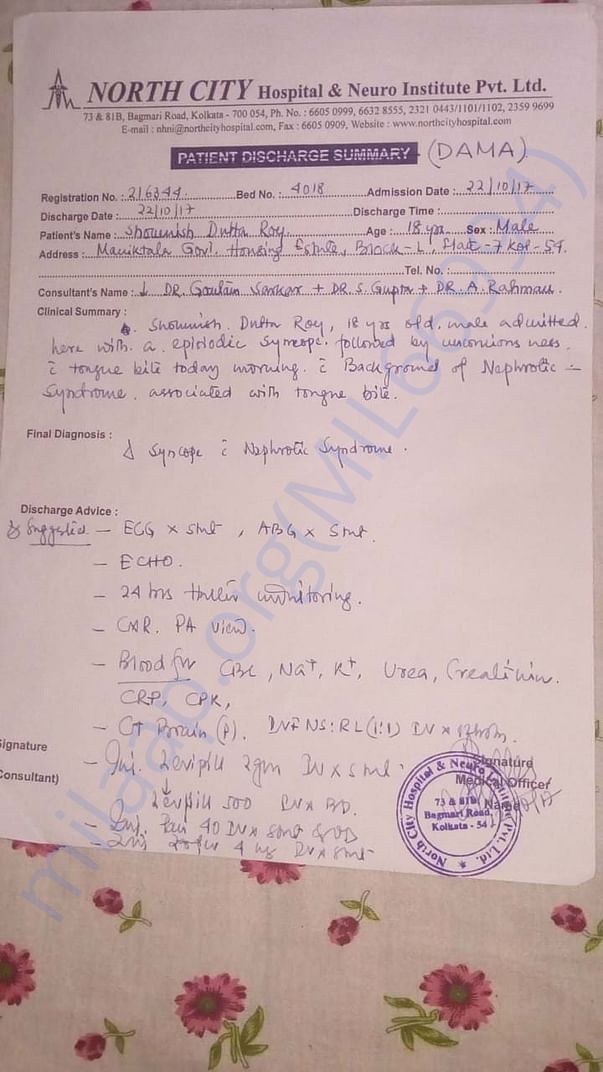 NORTH CITY Hospital & Neuro Institute Pvt. Ltd.
73 & 81B, Bagmari Road, Kolkata - 700 054, Ph. No. : 6605 0999, 6632 8555, 2321 0443/1101/1102, 2359 9699
E-mail : nhni@northcityhospital.com, Fax : 6605 0909, Website : www.northcityhospital.com
PATIENT DISCHARGE SUMMARY (DAMA)
Registration No. : 216344 Bed No. : 4018 Admission Date : 22/10/17
Discharge Date : 22/10/17 Discharge Time :
Patient's Name : Shounish Dutta Roy. Age : 18 yrs Sex : Male
Address : Maniktala Govt. Housing Estate, Block-L, Flat-7 Kol-54.
Tel. No. :
Consultant's Name : DR. Goutam Sarkar + DR. S. Gupta + DR. A. Rahman
Clinical Summary :
Shounish Dutta Roy, 18 yrs old, male admitted
here with a episodic syncope. followed by unconsciousness.
c̄ tongue bite today morning. c̄ Background of Nephrotic -
Syndrome. associated with tongue bite.
Final Diagnosis :
Syncope c̄ Nephrotic Syndrome.
Discharge Advice :
Suggested - ECG x stat, ABG x Stat.
- ECHO.
- 24 hrs Holter monitoring.
- CXR. PA view.
- Blood for CBC, Na+, K+, Urea, Creatinin.
CRP, CPK,
- CT Brain (P). IVF NS:RL (1:1) IV x
- Inj. Levipil 2gm IV x stat
↓
Levipil 500 IV x BD.
- Inj. Pan 40 IV x stat & OD
- Inj. 4 mg IV x stat
Signature
Consultant)
Signature
Medical Officer
Name
North City Hospital & Neuro Institute Pvt. Ltd.
73 & 81B,
Bagmari Road,
Kolkata - 54
milaap.org(MIL66934)